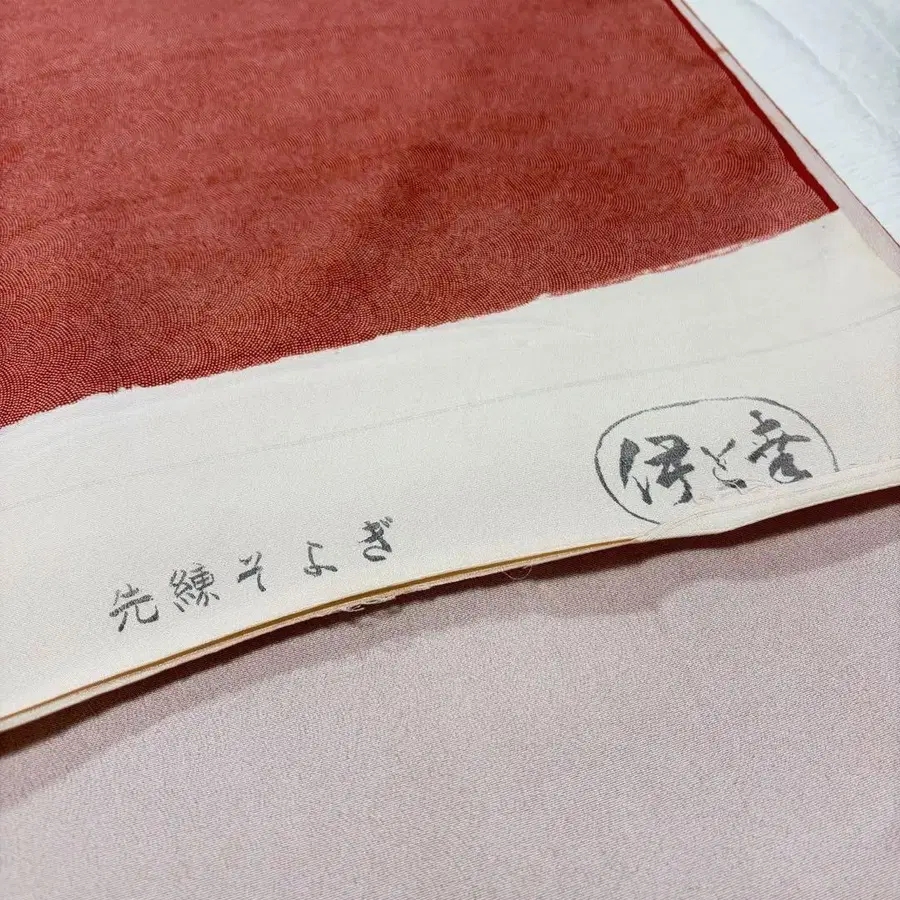 伊と幸
先練そよぎ